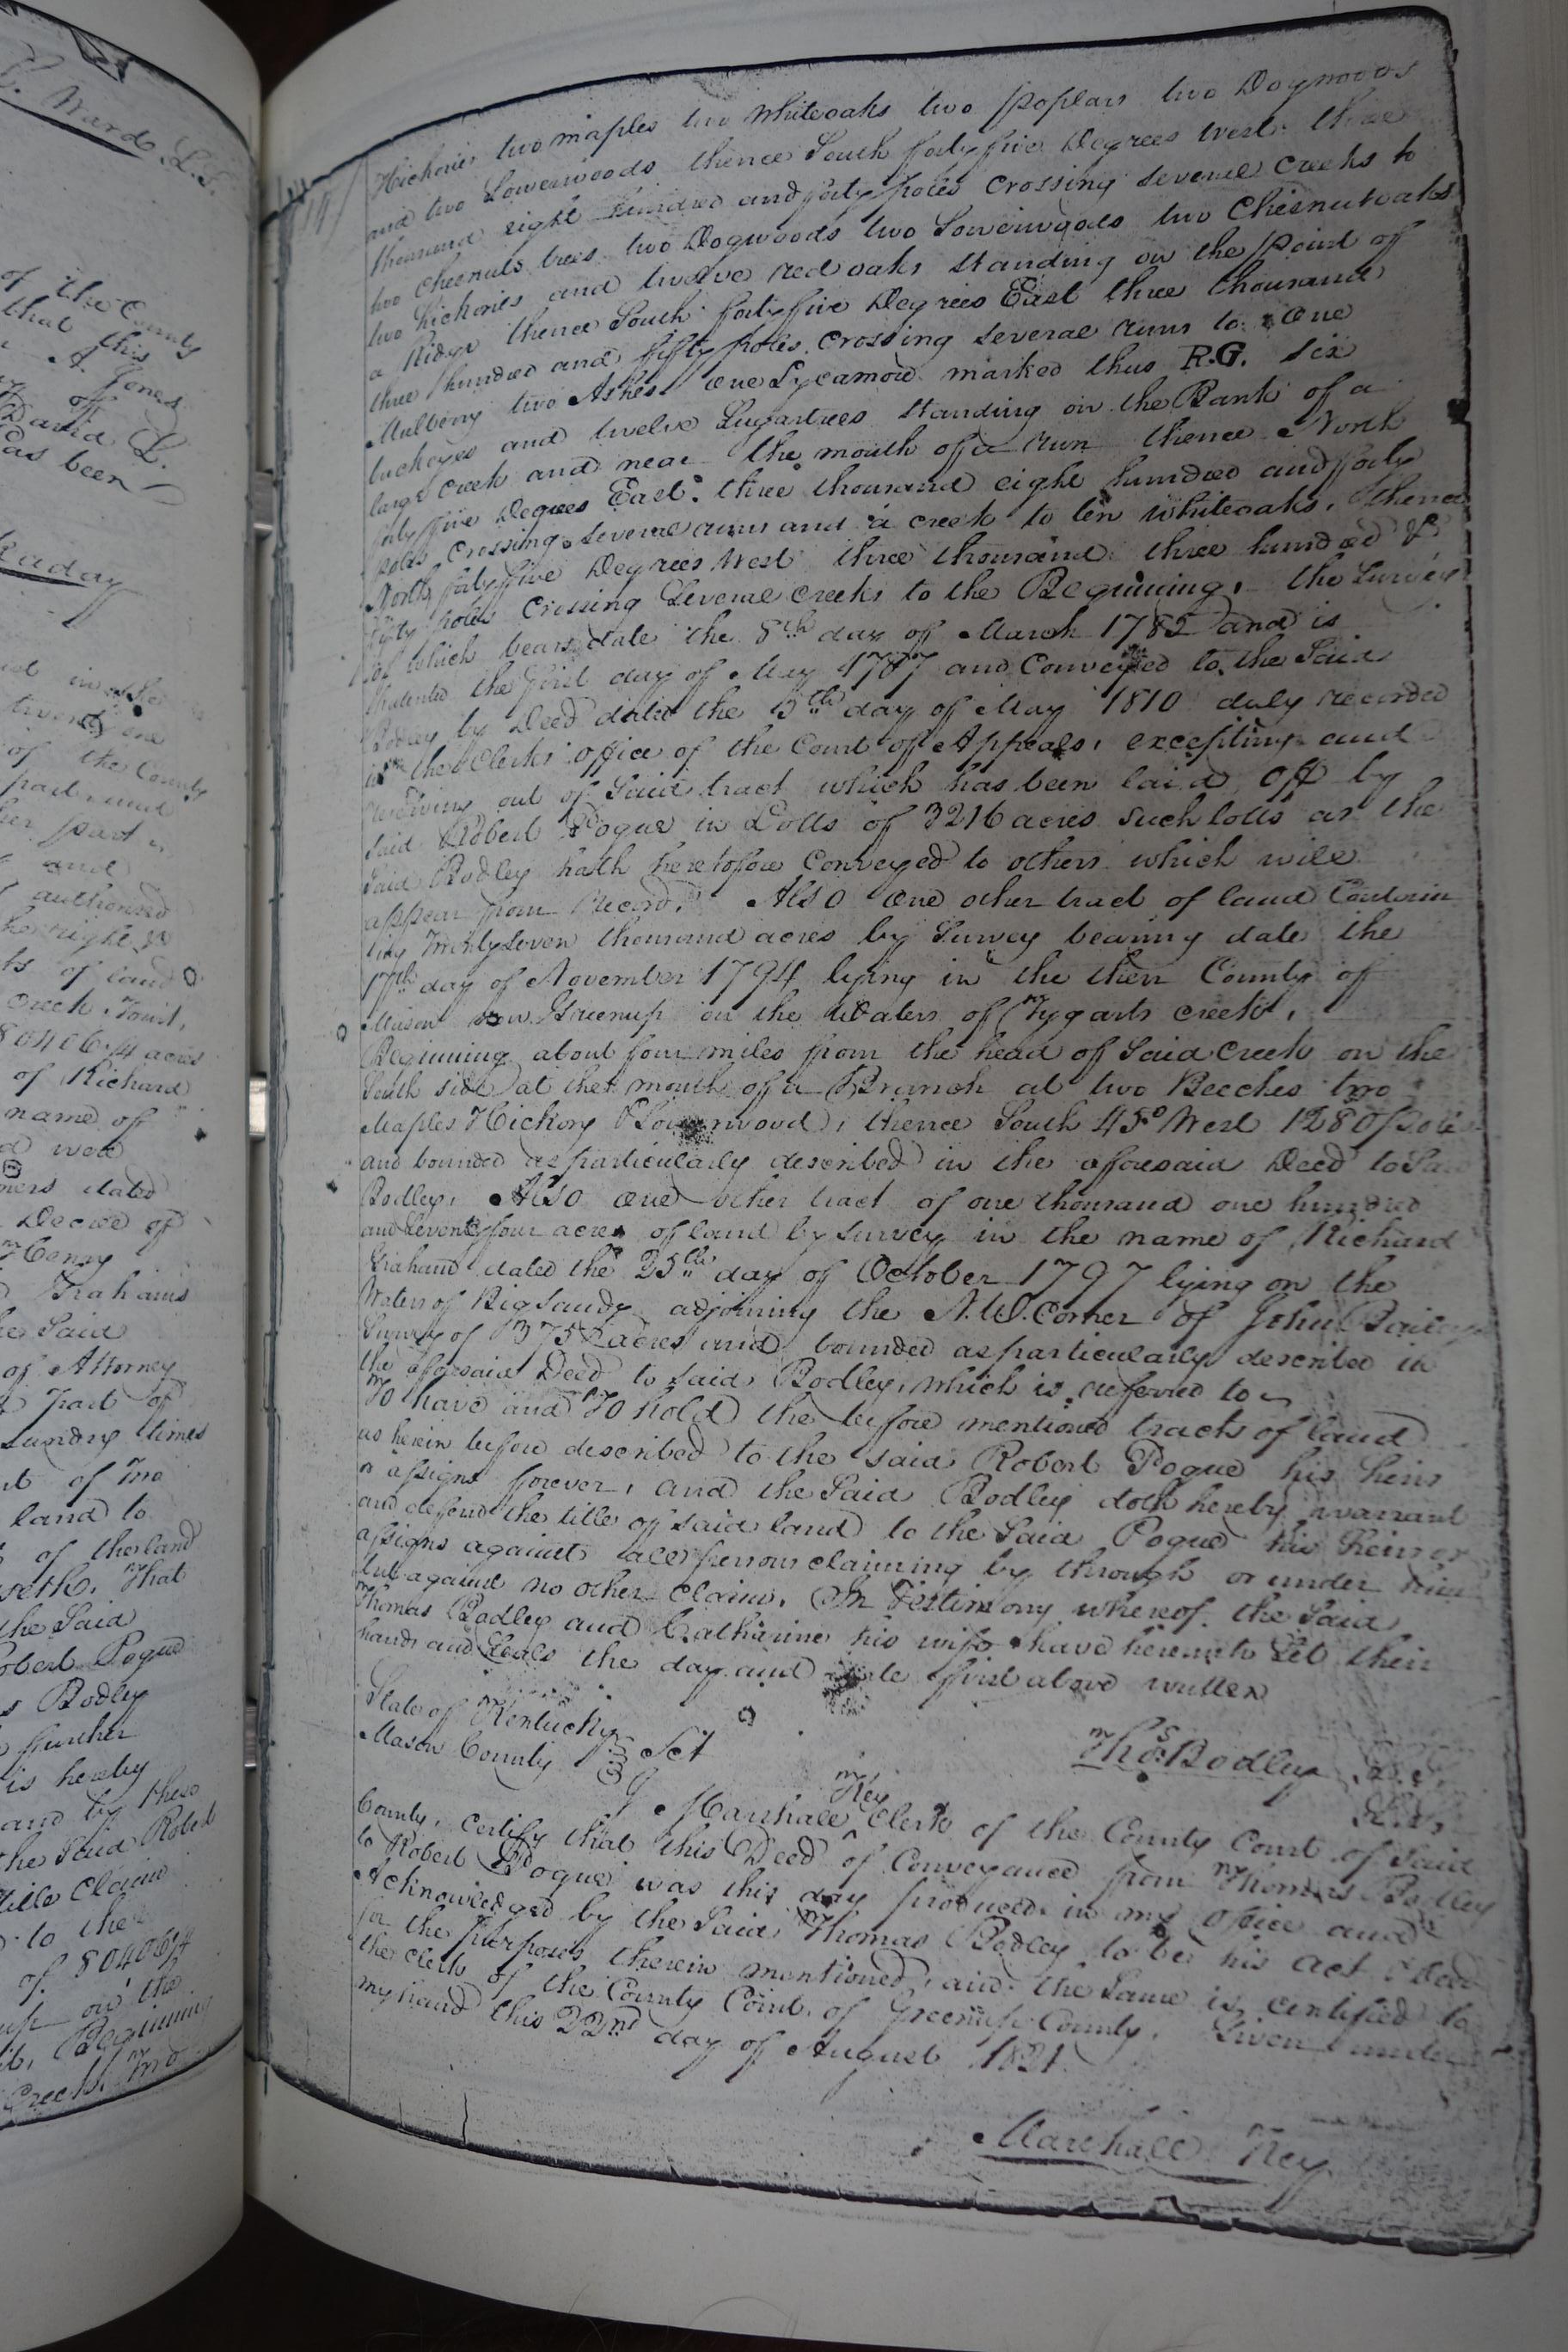 E. Ward L.S.
of the County
that this
A. Jones
of
David L.
as been
of the County
part and
her part
and
authorised
the right
ts of land
Creek, Tract,
80406 1/4 acres
of Richard
name of
d were
dated
Decree of
Henry
Grahams
the Said
of Attorney
Tract of
Sundry times
nt of Two
land to
of the land
seth, That
the Said
Robert Pogue
s Bodley
further
is hereby
and by these
the Said Robert
title Claim
to the
of 80406 1/4
up on the
Beginning
Creek, Two
Hickories two maples two Whiteoaks two poplars two Dogwoods
and two Sowerwoods thence South forty five Degrees West three
thousand eight hundred and forty poles Crossing several Creeks to
two Chesnuts trees two Dogwoods two Sowerwoods two Chesnutoaks
two hickories and twelve red oaks Standing on the point of
a Ridge thence South forty five Degrees East three thousand
three hundred and fifty poles Crossing several runs to One
Mulberry two Ashes one Sycamore marked thus R.G. six
buckeyes and twelve Sugartrees Standing on the Bank of a
large Creek and near the mouth of a run thence North
forty five Degrees East three thousand eight hundred and forty
poles Crossing several runs and a creek to ten Whiteoaks, thence
North forty five Degrees West three thousand three hundred &
fifty poles Crossing Several creeks to the Beginning, the Survey
of which bears date the 8th day of March 1785 and is
Patented the first day of May 1787 and Conveyed to the Said
Bodley by Deed dated the 15th day of May 1810 duly recorded
in the Clerks office of the Court of Appeals, excepting and
reserving out of Said tract which has been laid off by
said Robert Pogue in Lotts of 3216 acres such lotts as the
Said Bodley hath heretofore Conveyed to others which will
appear from record, Also one other tract of land Contain
ing Twenty Seven thousand acres by Survey bearing date the
17th day of November 1794 lying in the then County of
Mason now Greenup on the Waters of Tygarts creek,
Beginning about four miles from the head of Said Creek on the
South side at the mouth of a Branch at two Beeches two
Maples Hickory & Sowerwood, thence South 45° West 1280 poles
and bounded as particularly described in the aforesaid Deed to Said
Bodley, Also one other tract of one thousand one hundred
and Seventy four acres of land by survey in the name of Richard
Graham dated the 25th day of October 1797 lying on the
Waters of Big Sandy adjoining the N.W. Corner of John Baileys
Survey of 1375 acres and bounded as particularly described in
the aforesaid Deed to said Bodley, which is referred to
To have and To hold the before mentioned tracts of land
as herein before described to the said Robert Pogue his heirs
or assigns forever, and the Said Bodley doth hereby warrant
and defend the title of Said land to the Said Pogue his heirs or
assigns against all persons claiming by through or under him
but against no other claim. In Testimony whereof the Said
Thomas Bodley and Catharine his wife have hereunto Set their
hands and Seals the day and date first above written
Thos. Bodley L.S.
L.S.
State of Kentucky
Mason County Sct
I Marshall Key Clerk of the County Court of Said
County, certify that this Deed of Conveyance from Thomas Bodley
to Robert Pogue was this day produced in my office and
Acknowledged by the Said Thomas Bodley to be his act & Deed
for the purposes therein mentioned, and the Same is certified to
the Clerk of the County Court of Greenup County. Given under
my hand this 22nd day of August 1821.
Marshall Key